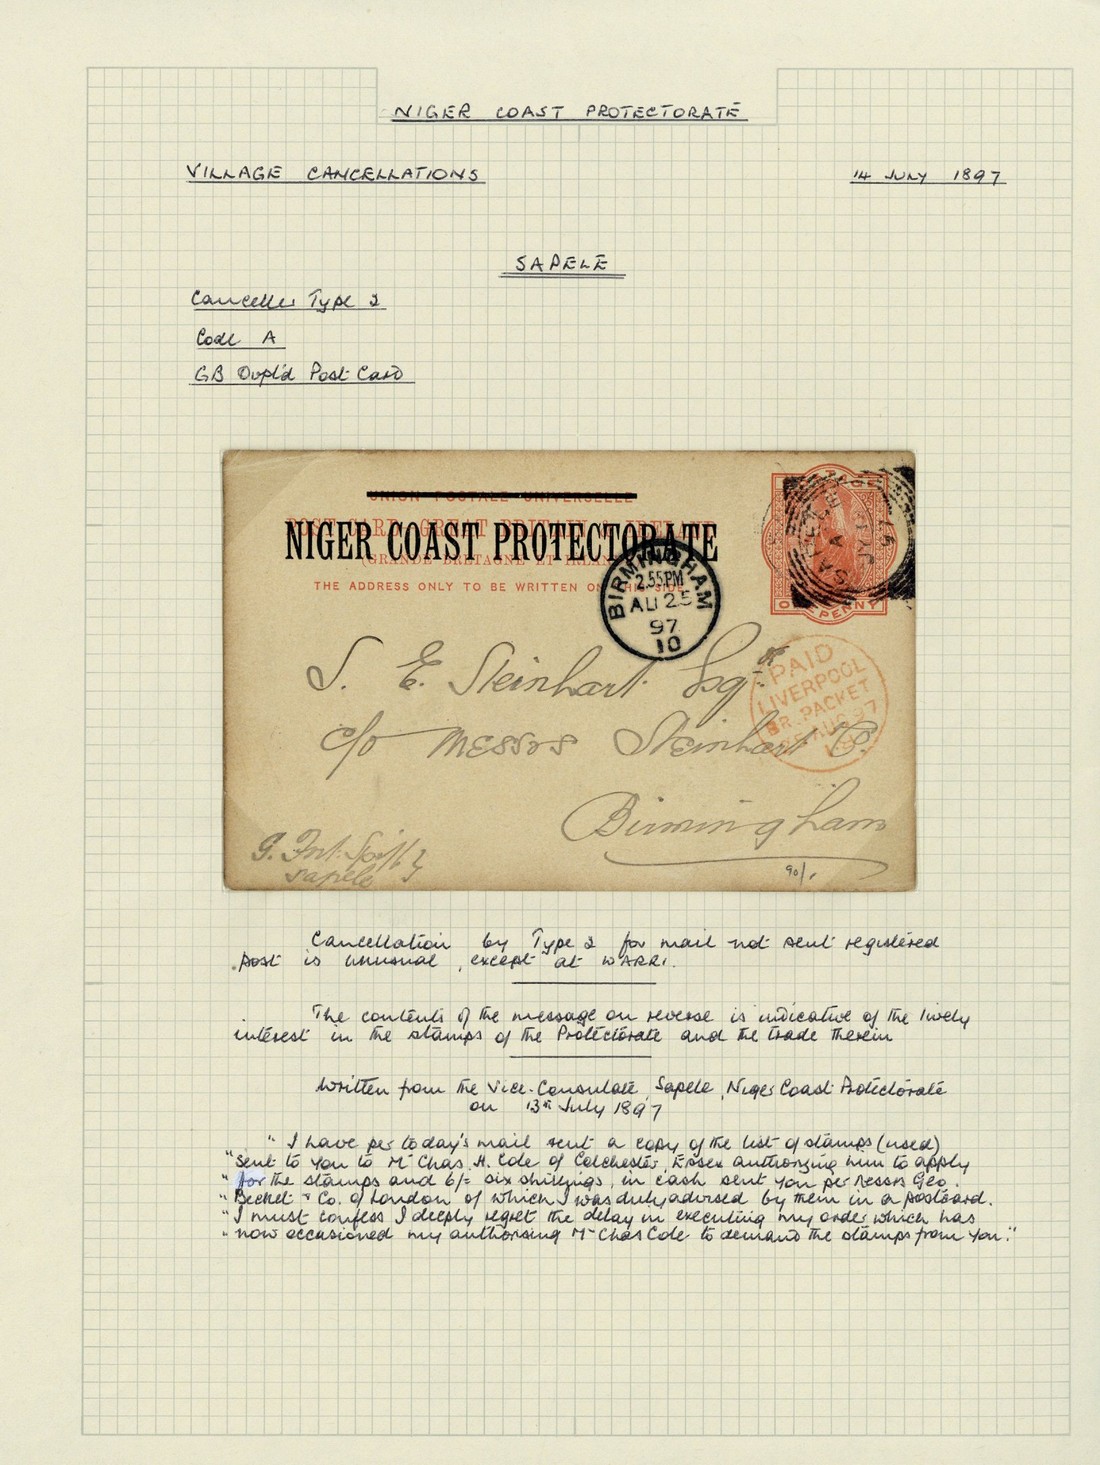 NIGER COAST PROTECTORATE
VILLAGE CANCELLATIONS
14 JULY 1897
SAPELE
Canceller Type 2
Code A
GB Ovpt'd Post Card
UNION POSTALE UNIVERSELLE
POST CARD GREAT BRITAIN & IRELAND
NIGER COAST PROTECTORATE
(GRANDE BRETAGNE ET IRLANDE)
THE ADDRESS ONLY TO BE WRITTEN ON THIS SIDE
BIRMINGHAM
2.55PM
AU 25
97
10
SAPELE
A
JY
97
POSTAGE
ONE PENNY
PAID
LIVERPOOL
BR. PACKET
25 AUG 97
S. E. Steinhart Esqr
c/o Messrs Steinhart & Co.
Birmingham
G. Sapele
90/.
Cancellation by Type 2 for mail not sent registered
post is unusual, except at WARRI.
The contents of the message on reverse is indicative of the lively
interest in the stamps of the Protectorate and the trade therein
Written from the Vice-Consulate, Sapele, Niger Coast Protectorate
on 13th July 1897
" I have per today's mail sent a copy of the list of stamps (used)
" sent to you to Mr Chas. H. Cole of Colchester, Essex authorizing him to apply
" for the stamps and 6/= six shillings, in cash sent you per Messrs Geo.
" Becket & Co. of London of which I was duly advised by them in a postcard.
" I must confess I deeply regret the delay in executing my order which has
" now occasioned my authorising Mr Chas Cole to demand the stamps from you."